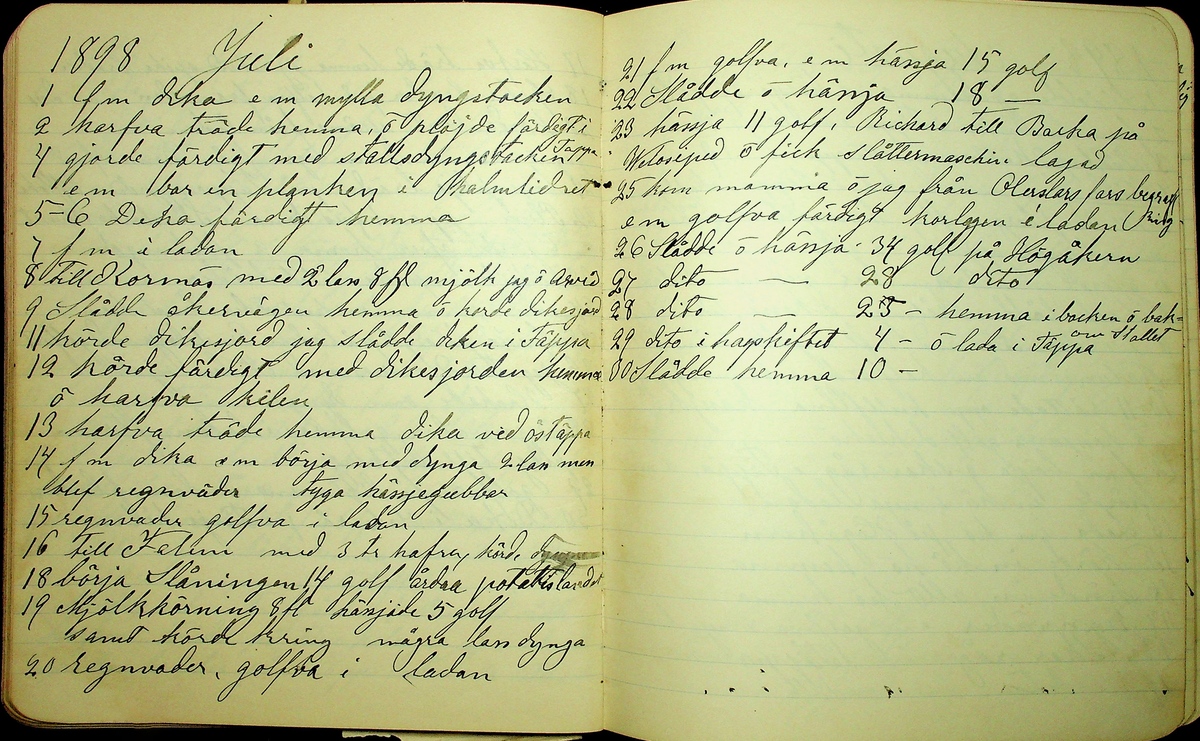 1898 Juli
1 f m dika e m mylla dyngstacken
2 harfva träde hemma, ö plöjde färdigt i Täppa
4 gjorde färdigt med stallsdyngstacken
e m bar in planken i halmlidret
5-6 Dika färdigt hemma
7 f m i ladan
8 till Kornnäs med 2 las 8 fl mjölk jag ö Arvid
9 Slådde åkervägen hemma ö körde dikesjord
11 körde dikesjord jag slådde diken i Täppa
12 körde färdigt med dikesjorden hemma
ö harfva kilen
13 harfva träde hemma dika ved östäppa
14 f m dika e m börja med dynga 2 las men
blef regnväder tyga hässjegubbar
15 regnvader golfva i ladan
16 till Falun med 3 tr hafra, körde
18 börja Slåningen 14 golf årdra potatislandet
19 Mjölkkörning 8 fl hässjade 5 golf
samt körde kring några las dynga
20 regnvader, golfva i ladan
21 f m golfva, e m hässja 15 golf
22 Slådde ö hässja 18 —
23 hässja 11 golf, Richard till Backa på
Veloseped ö fick slåttermaschin lagad
25 kom mamma ö jag från Olerslars fars begrafning
e m golfva färdigt korlagen i ladan
26 Slådde ö hässja 34 golf på Högåkern
27 dito — 28 dito
28 dito — 25 — hemma i backen ö bak=
29 dito i hagskiftet 4 — ö lada i Täppa om Stallet
30 Slådde hemma 10 —